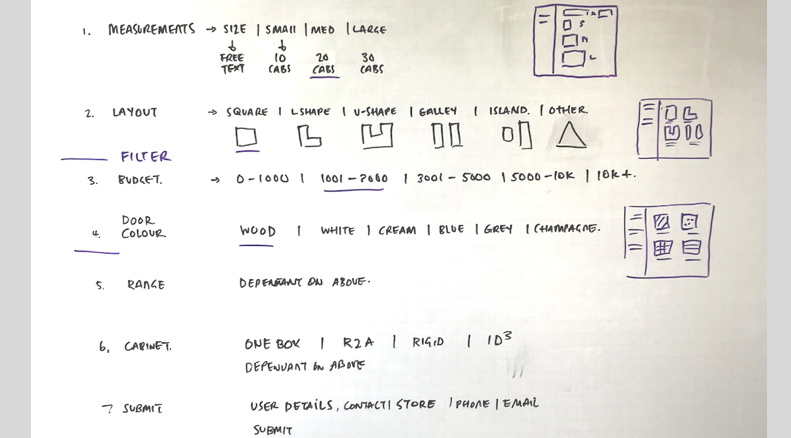 1. MEASUREMENTS → SIZE | SMALL | MED | LARGE
FREE TEXT 10 CABS 20 CABS 30 CABS
S
M
L
2. LAYOUT → SQUARE | L SHAPE | U-SHAPE | GALLEY | ISLAND. | OTHER
FILTER
3. BUDGET. → 0-1000 | 1001-2000 | 3001-5000 | 5000-10K | 10K+.
4. DOOR COLOUR WOOD | WHITE | CREAM | BLUE | GREY | CHAMPAGNE.
5. RANGE DEPENDANT ON ABOVE.
6. CABINET. ONE BOX | R2A | RIGID | ID3
DEPENDANT ON ABOVE
7 SUBMIT USER DETAILS, CONTACT | STORE | PHONE | EMAIL
SUBMIT